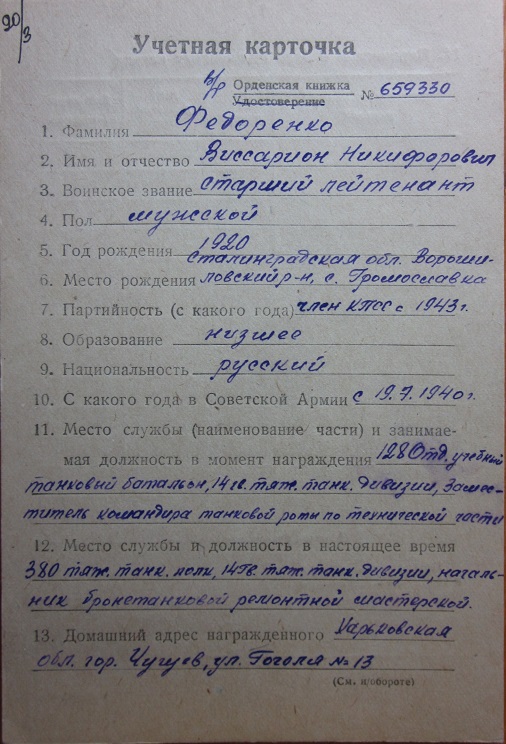 20/3
Учетная карточка
в/р Орденская книжка
Удостоверение № 659330
1. Фамилия Федоренко
2. Имя и отчество Виссарион Никифорович
3. Воинское звание старший лейтенант
4. Пол мужской
5. Год рождения 1920
сталинградская обл. Вороши-
6. Место рождения ловский р-н, с. Громославка
7. Партийность (с какого года) член КПСС с 1943 г.
8. Образование низшее
9. Национальность русский
10. С какого года в Советской Армии с 19.7.1940 г.
11. Место службы (наименование части) и занимае-
мая должность в момент награждения 128 Отд. учебный
танковый батальон, 14 гв. тяж. танк. дивизии, Замес-
титель командира танковой роты по технической части
12. Место службы и должность в настоящее время
380 тяж. танк. полк, 14 Гв. тяж. танк. дивизии, началь-
ник бронетанковой ремонтной мастерской.
13. Домашний адрес награжденного Харьковская
обл. гор. Чугуев, ул. Гоголя № 13
(См. н/обороте)